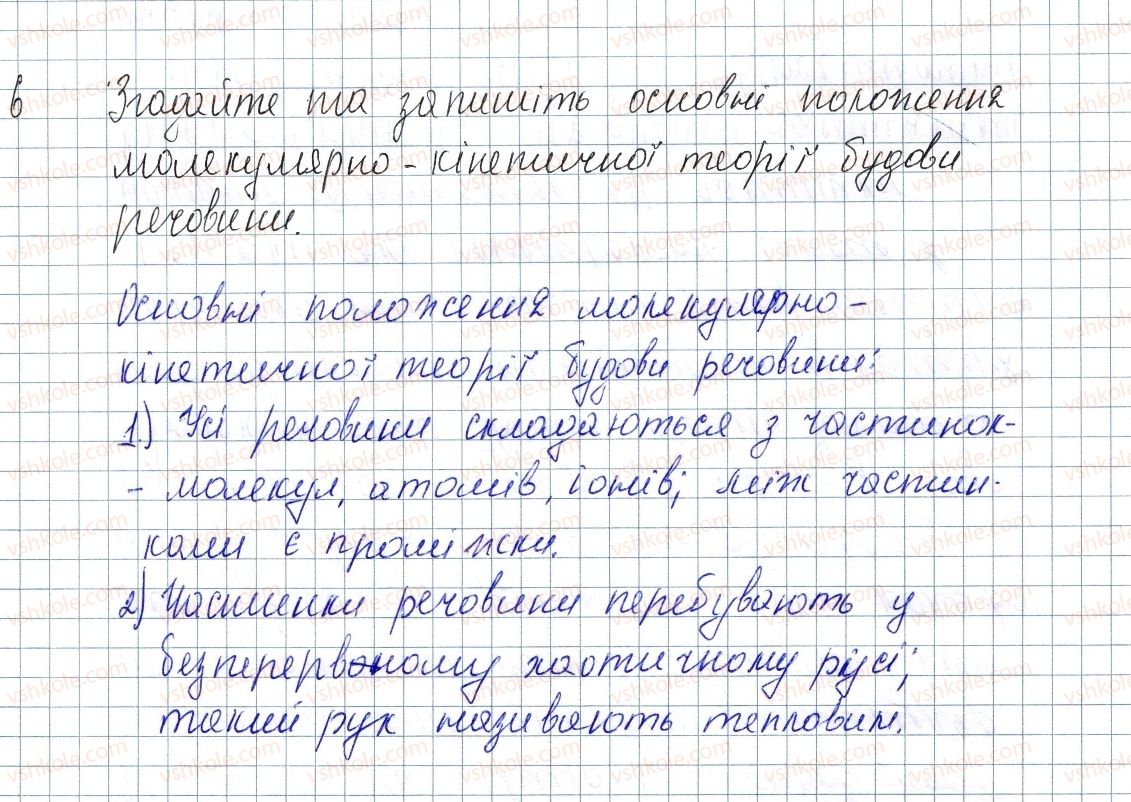 6 Згадайте та запишіть основні положення
молекулярно-кінетичної теорії будови
речовини.
Основні положення молекулярно-
кінетичної теорії будови речовини:
1) Усі речовини складаються з частинок-
- молекул, атомів, іонів; між частин-
ками є проміжки.
2) Частинки речовини перебувають у
безперервному хаотичному русі;
такий рух називають тепловим.
vshkole.com